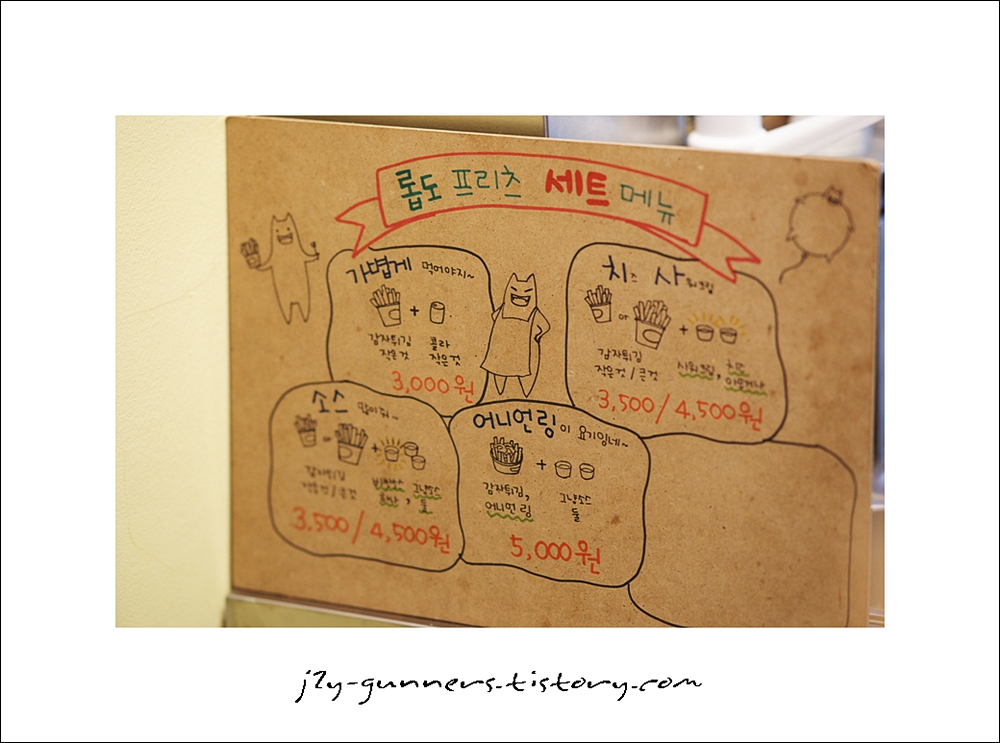 롭도 프리츠 세트 메뉴
가볍게 먹어야지~
+
감자튀김 콜라
작은것 작은것
3,000원
치즈 사워크림
or +
감자튀김
작은것/큰것 사워크림, 치즈
3,500/4,500원
소스 많이줘~
or +
감자튀김
작은것/큰것 그냥소스
둘
3,500/4,500원
어니언링이 요기잉네~
+
감자튀김, 그냥소스
어니언링 둘
5,000원
j2y-gunners.tistory.com